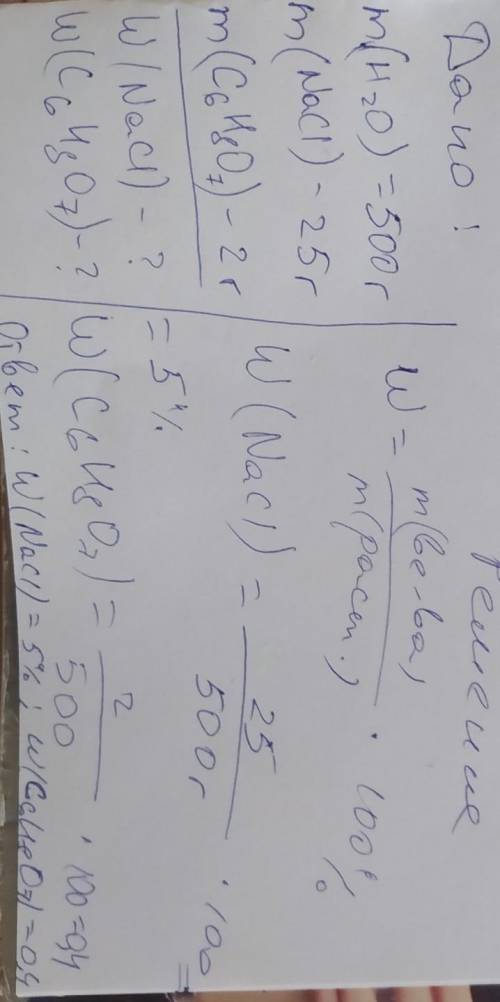 Дано:
m(H2O) = 500 г
m(NaCl) - 25 г
m(C6H8O7) - 2 г
W(NaCl) - ?
W(C6H8O7) - ?
Решение
W = m(ве-ва) / m(раст.) · 100%
W(NaCl) = 25 / 500 г · 100 =
= 5%
W(C6H8O7) = 2 / 500 · 100 = 0,4
Ответ: W(NaCl) = 5%; W(C6H8O7) = 0,4